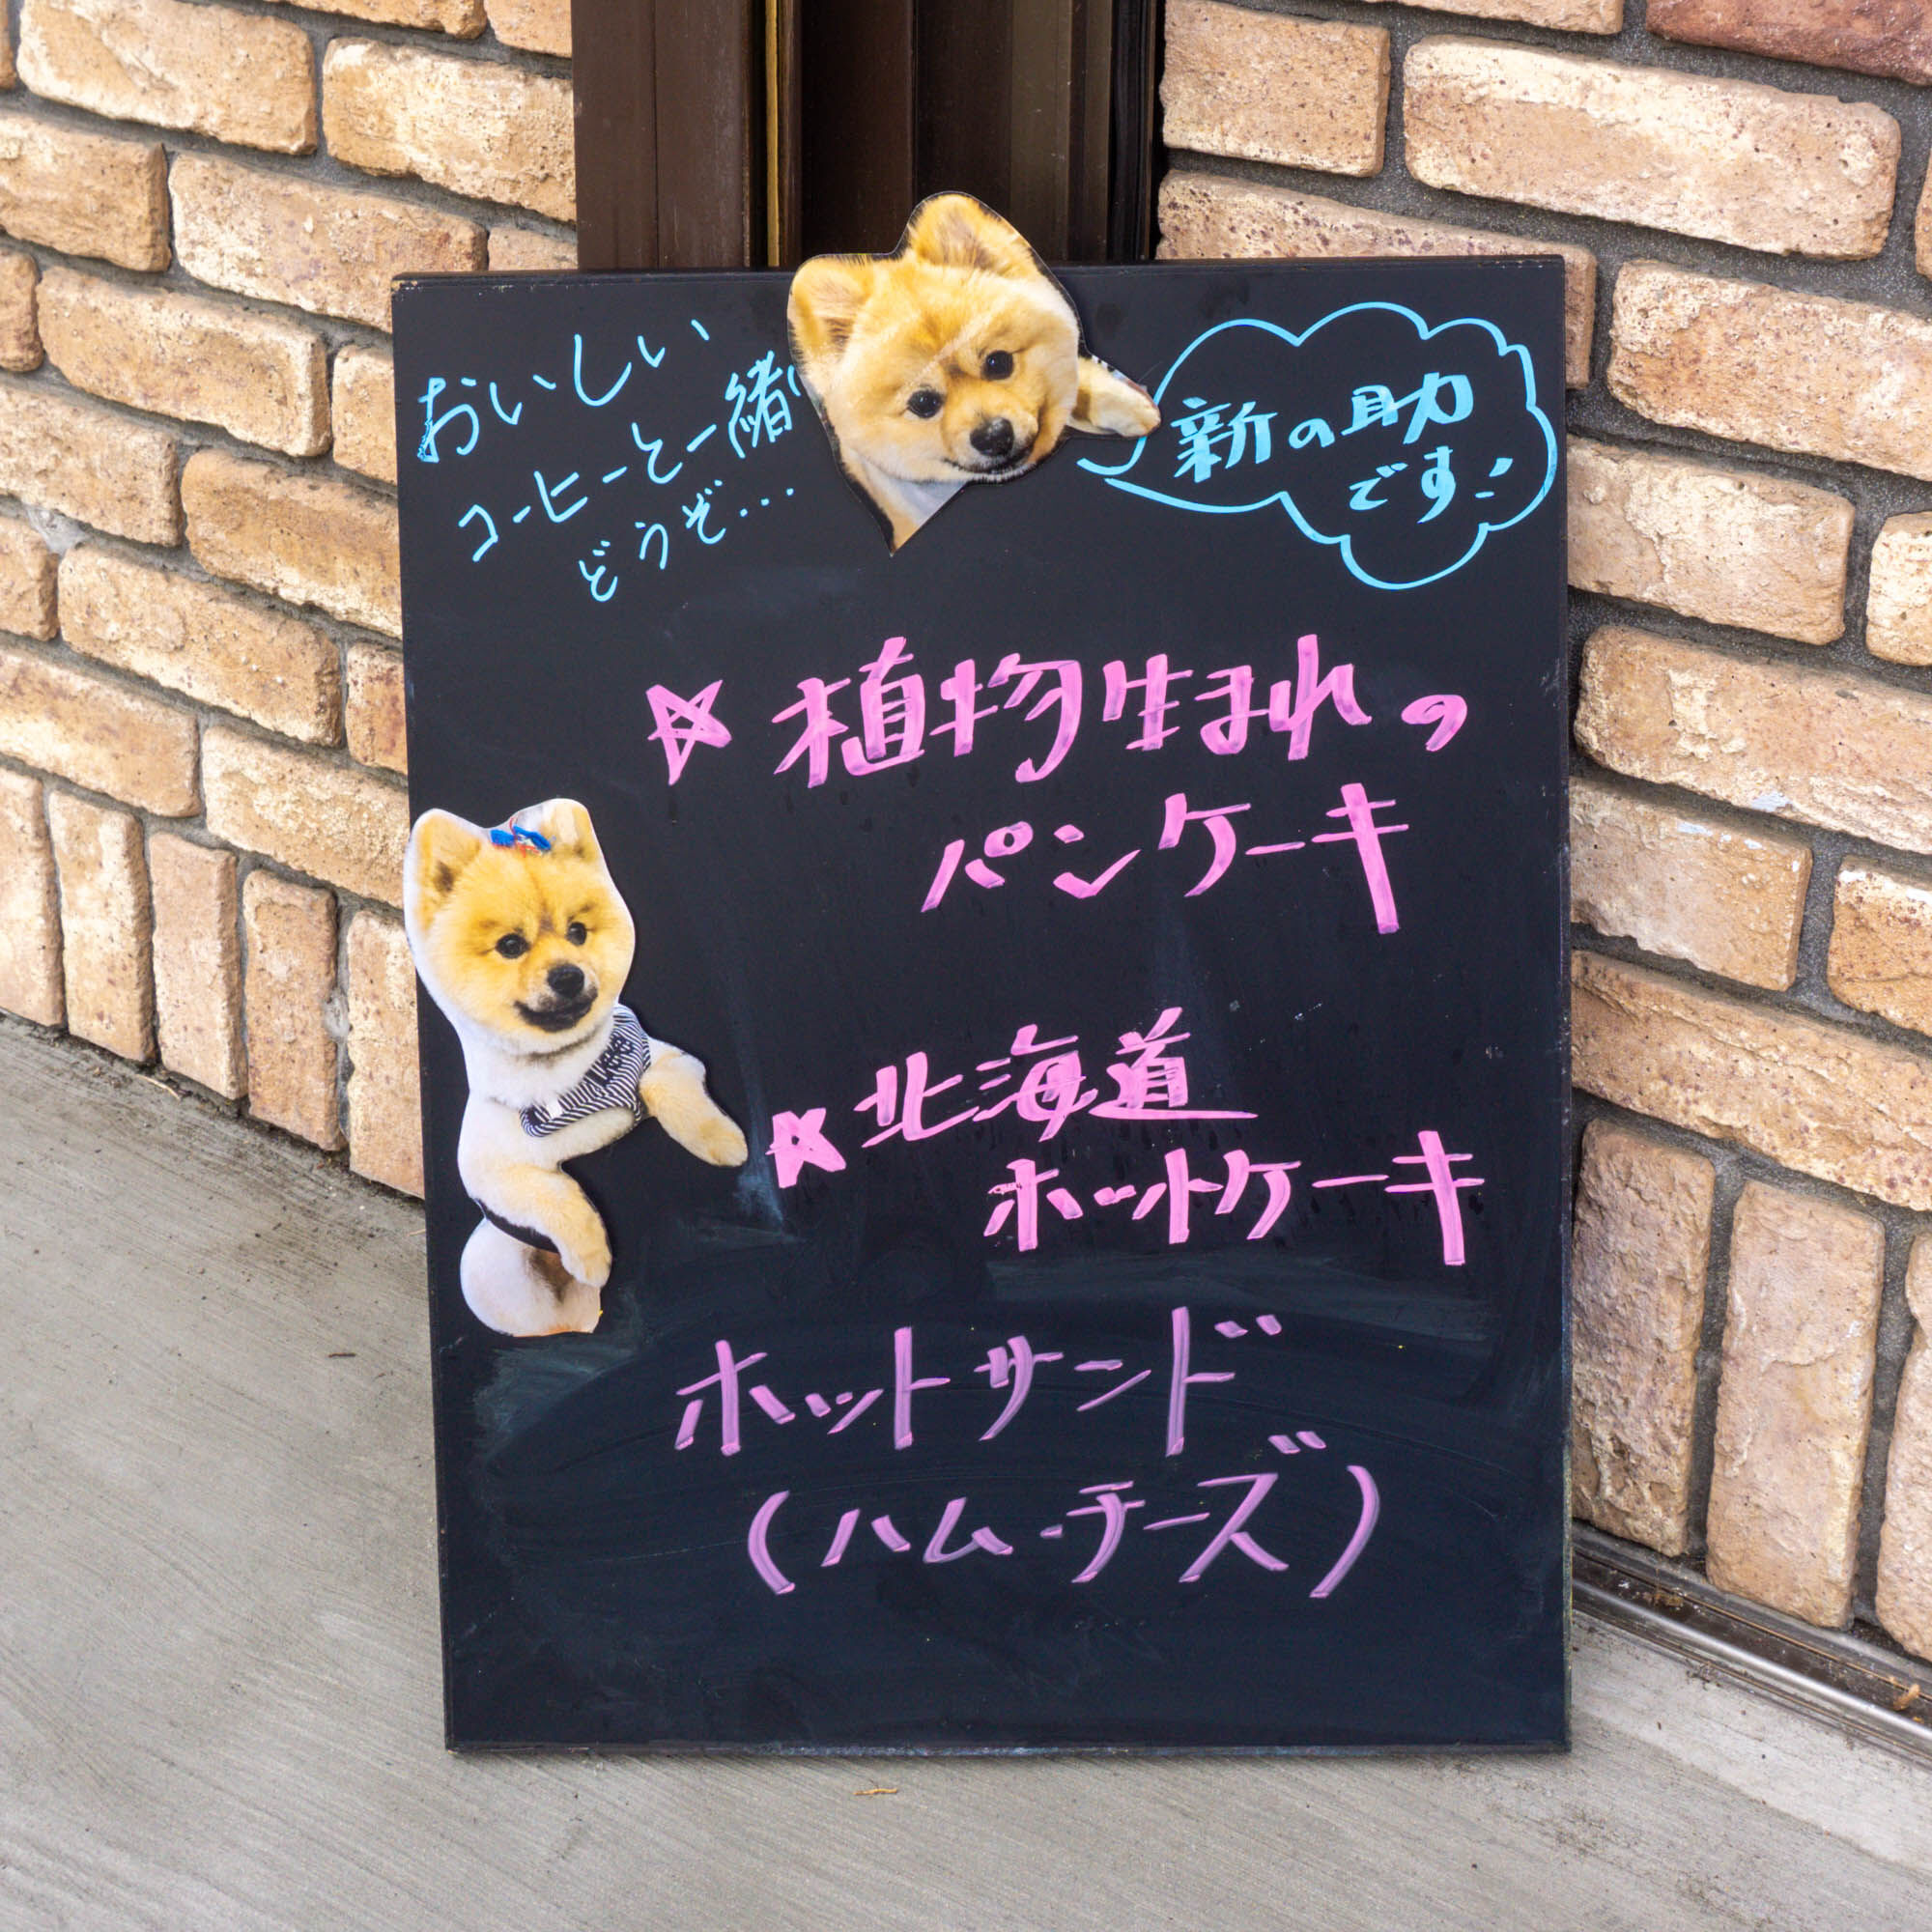 おいしい
コーヒーと一緒に
どうぞ...
新の助
です!
☆植物生まれの
パンケーキ
☆北海道
ホットケーキ
ホットサンド
(ハム・チーズ)